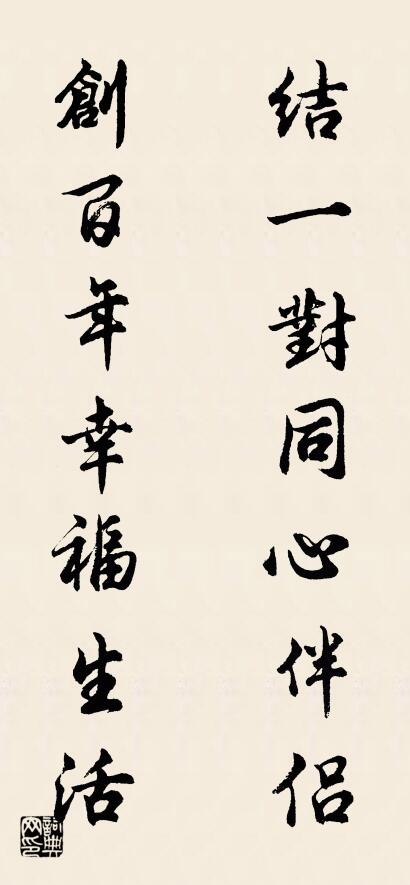 结一對同心伴侣
創百年幸福生活